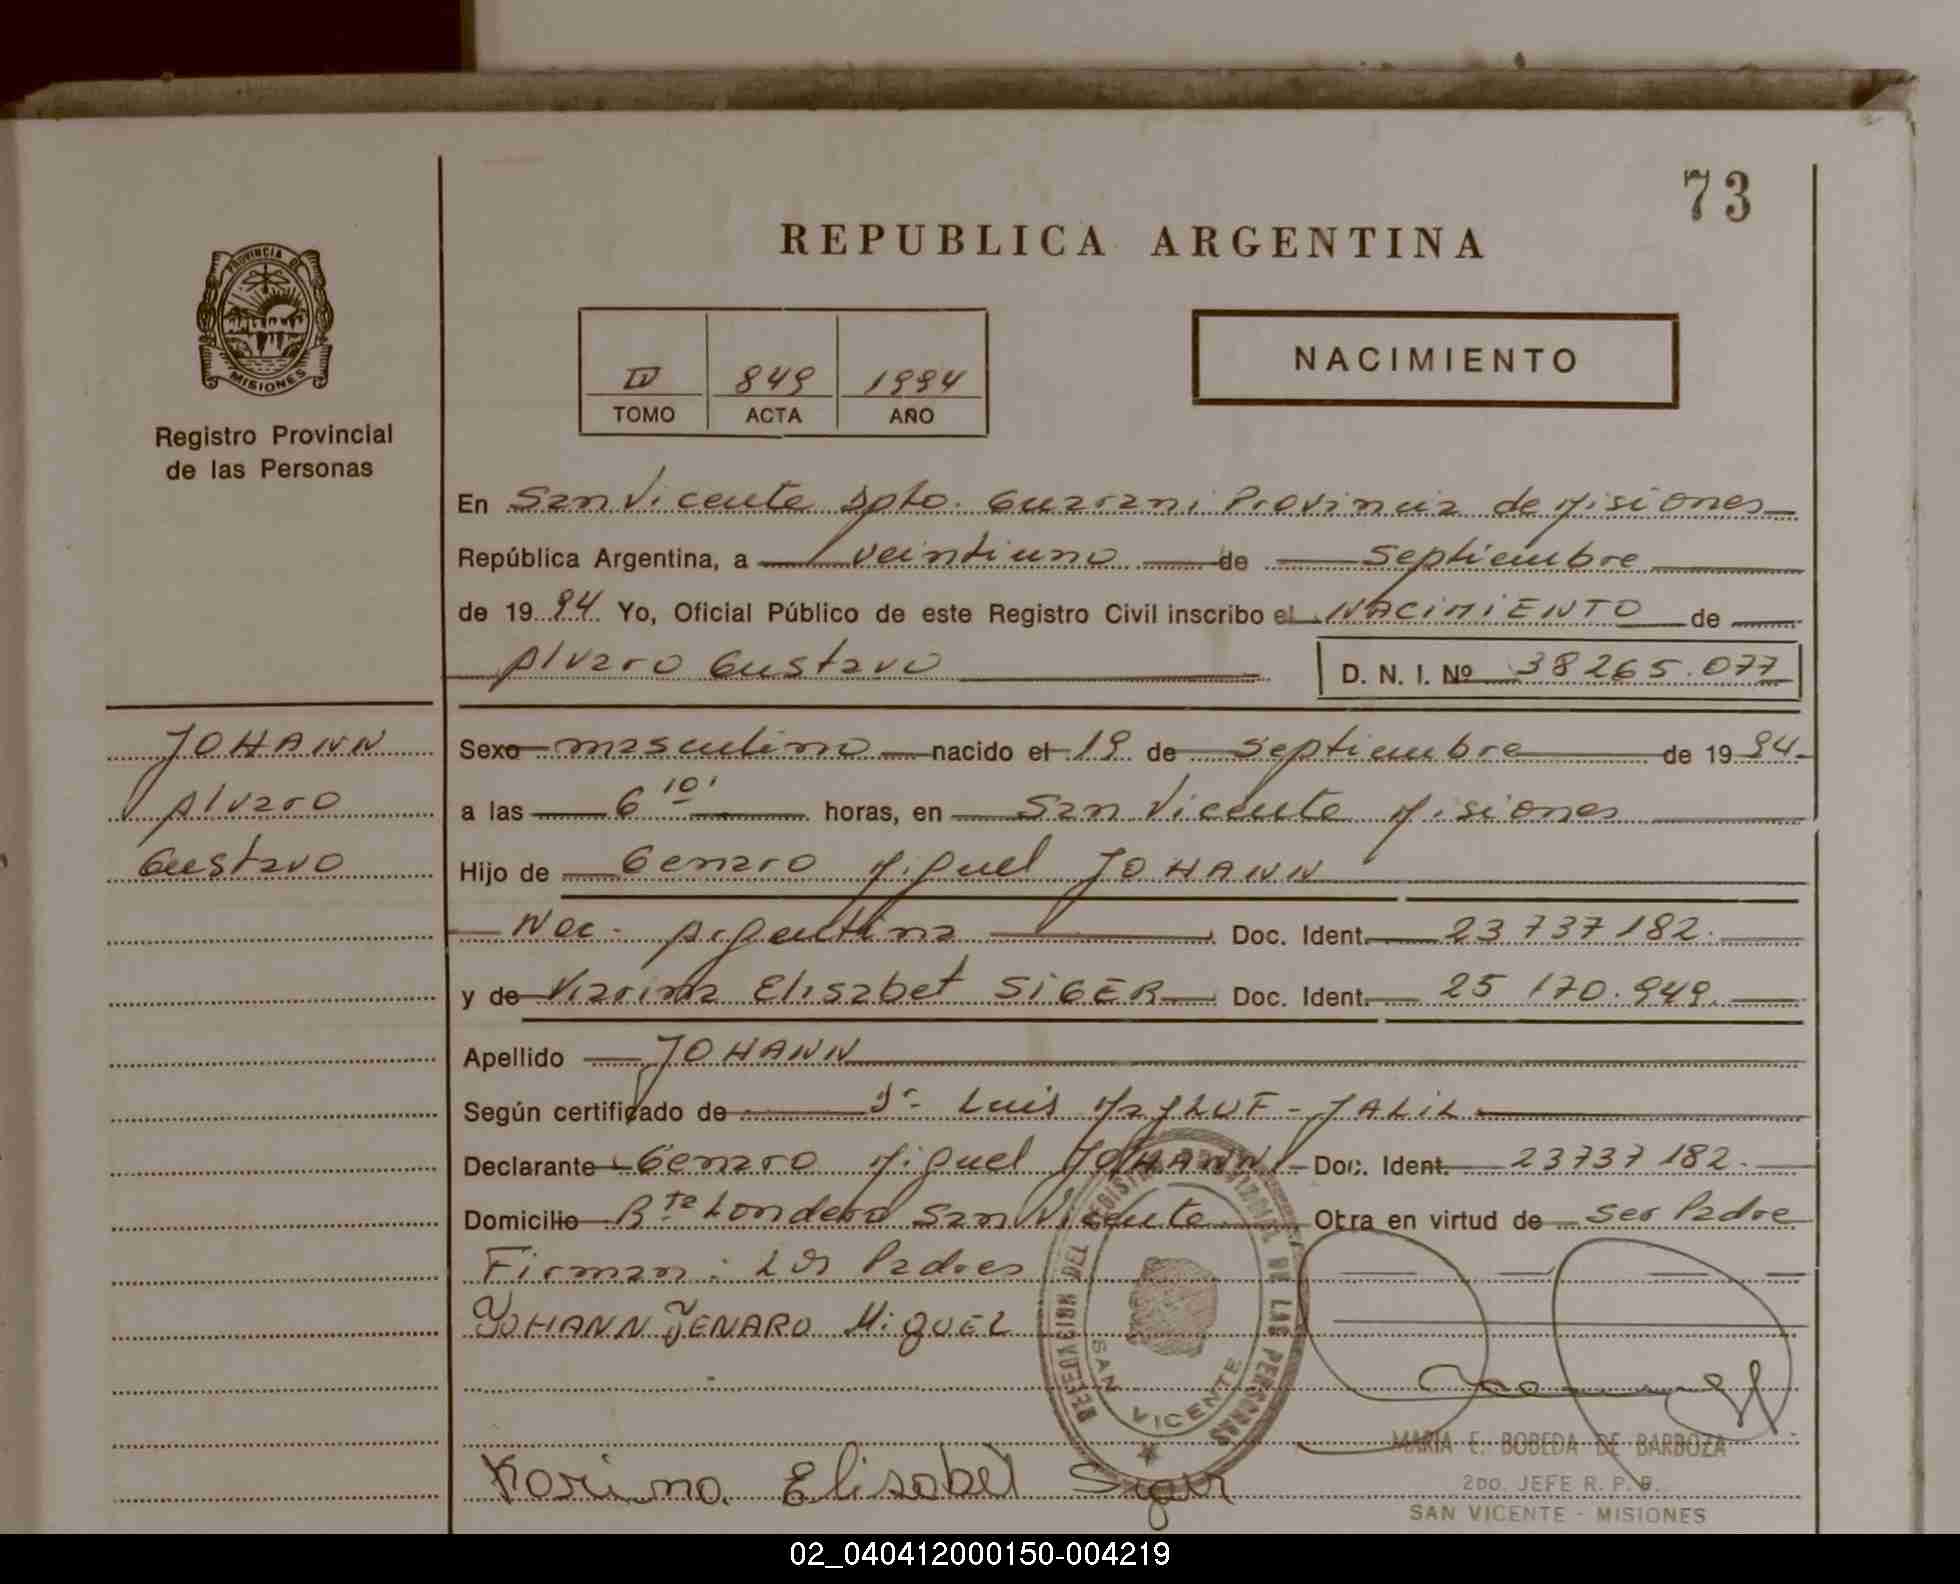 73
REPUBLICA ARGENTINA
PROVINCIA DE
MISIONES
Registro Provincial
de las Personas
IV 849 1994
TOMO ACTA AÑO
NACIMIENTO
En San Vicente Dpto. Guarani Provincia de Misiones
República Argentina, a veintiuno de septiembre
de 1994 Yo, Oficial Público de este Registro Civil inscribo el NACIMIENTO de
Alvaro Gustavo D. N. I. Nº 38265.077
JOHANN
Alvaro
Gustavo
Sexo masculino nacido el 19 de septiembre de 1994
a las 6 10' horas, en San Vicente Misiones
Hijo de Genaro Miguel JOHANN
Nac. Argentina Doc. Ident. 23737182.
y de Karina Elisabet SIGER Doc. Ident. 25170.949.
Apellido JOHANN
Según certificado de Dr. Luis JALIL
Declarante Genaro Miguel JOHANN Doc. Ident. 23737182.
Domicilio Londero San Vicente Otra en virtud de ser Padre
Firman: Los Padres
JOHANN JENARO MiGUEL
Karina Elisabet Siger
DEL REGISTRO PROVINCIAL DE LAS PERSONAS
SAN VICENTE
MARIA E. BOBEDA DE BARBOZA
2DO. JEFE R. P. P.
SAN VICENTE - MISIONES
02_040412000150-004219